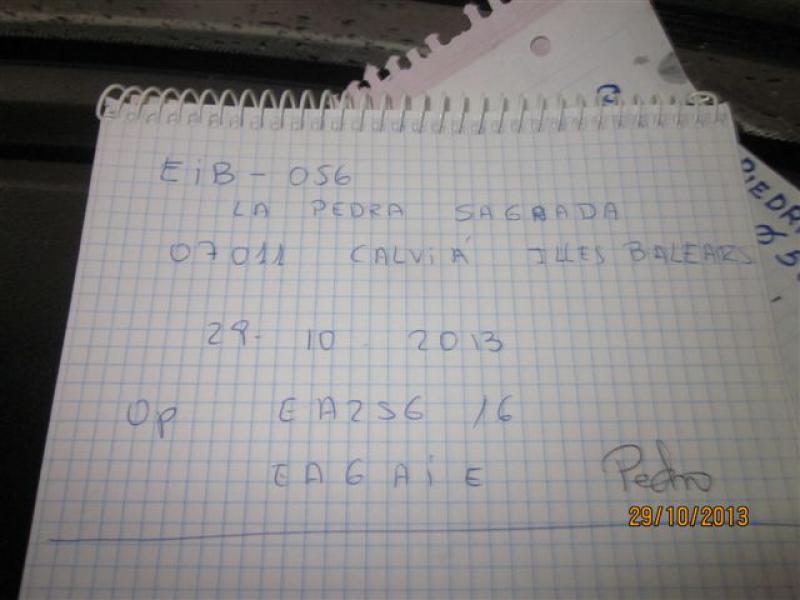 EiB - 056
LA PEDRA SAGRADA
07011 CALViÁ ILLES BALEARS
29- 10 - 2013
Op EA2S6 16
EA6AiE
Pedro
29/10/2013